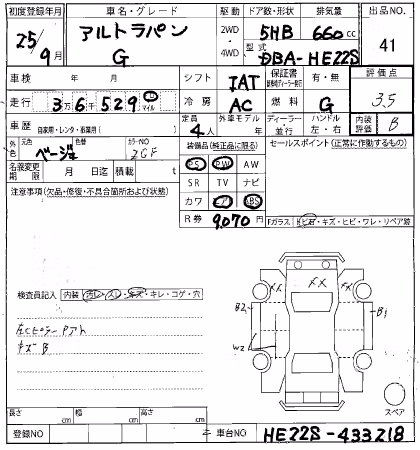 初度登録年月 車名・グレード 駆動 ドア数・形状 排気量 出品NO.
25/9月 アルトラパン G 2WD 4WD 5HB 660cc 41
型式 DBA-HE22S
車検 年 月 シフト IAT 保証書 有・無 評価点
走行 3万6千529 キロ マイル 冷房 AC 燃料 G 3.5
車歴 自家用・レンタ・事業用( ) 定員 4人 外車モデル 年 ディーラー 並行 ハンドル 左・右 内装評価 B
外色 元色 ベージュ 色替 カラーNO ZCF 装備品(純正品に限る) セールスポイント(正常に作動するもの)
名義変更期限 月 日迄 積載 t PS PW AW
注意事項(欠品・修復・不具合箇所および状態) SR TV ナビ
カワ ABS
R券 9,070円 Fガラス 飛石・キズ・ヒビ・ワレ・リペア跡
検査員記入 内装 汚レ・スレ・キズ・キレ・コゲ・穴
左Cピラー Pアト
キズ B
メメ メメ メメ
B2 W2 B1
スペア
長さ cm 幅 cm 高さ cm
登録NO 車台NO HE22S-433218